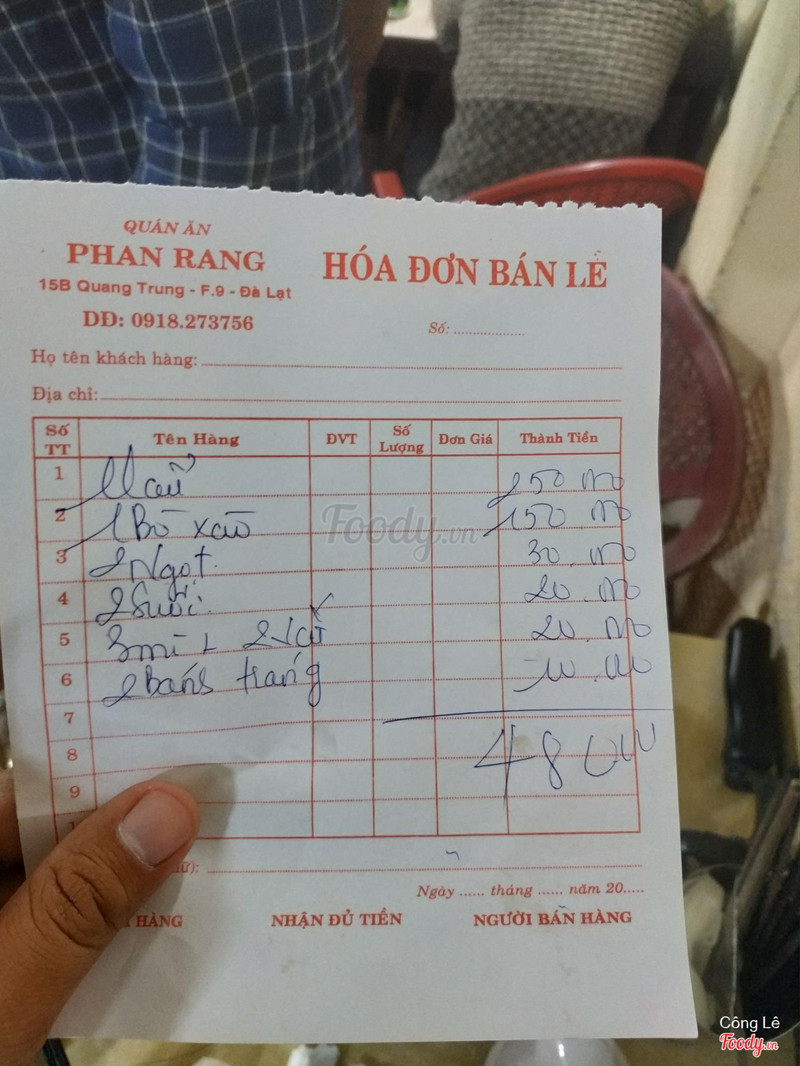 QUÁN ĂN
PHAN RANG
15B Quang Trung - F.9 - Đà Lạt
DĐ: 0918.273756
HÓA ĐƠN BÁN LẺ
Số: ...................
Họ tên khách hàng:
Địa chỉ:
Số TT Tên Hàng ĐVT Số Lượng Đơn Giá Thành Tiền
1 1 Lẩu 250.000
2 1 Bò xào 150.000
3 2 Ngọt 30.000
4 2 Suối 20.000
5 3 mì + 2 20.000
6 2 bánh tráng 10.000
7
8 480
9
Ngày ...... tháng ...... năm 20.....
HÀNG NHẬN ĐỦ TIỀN NGƯỜI BÁN HÀNG
Foody.vn
Công Lê
Foody.vn